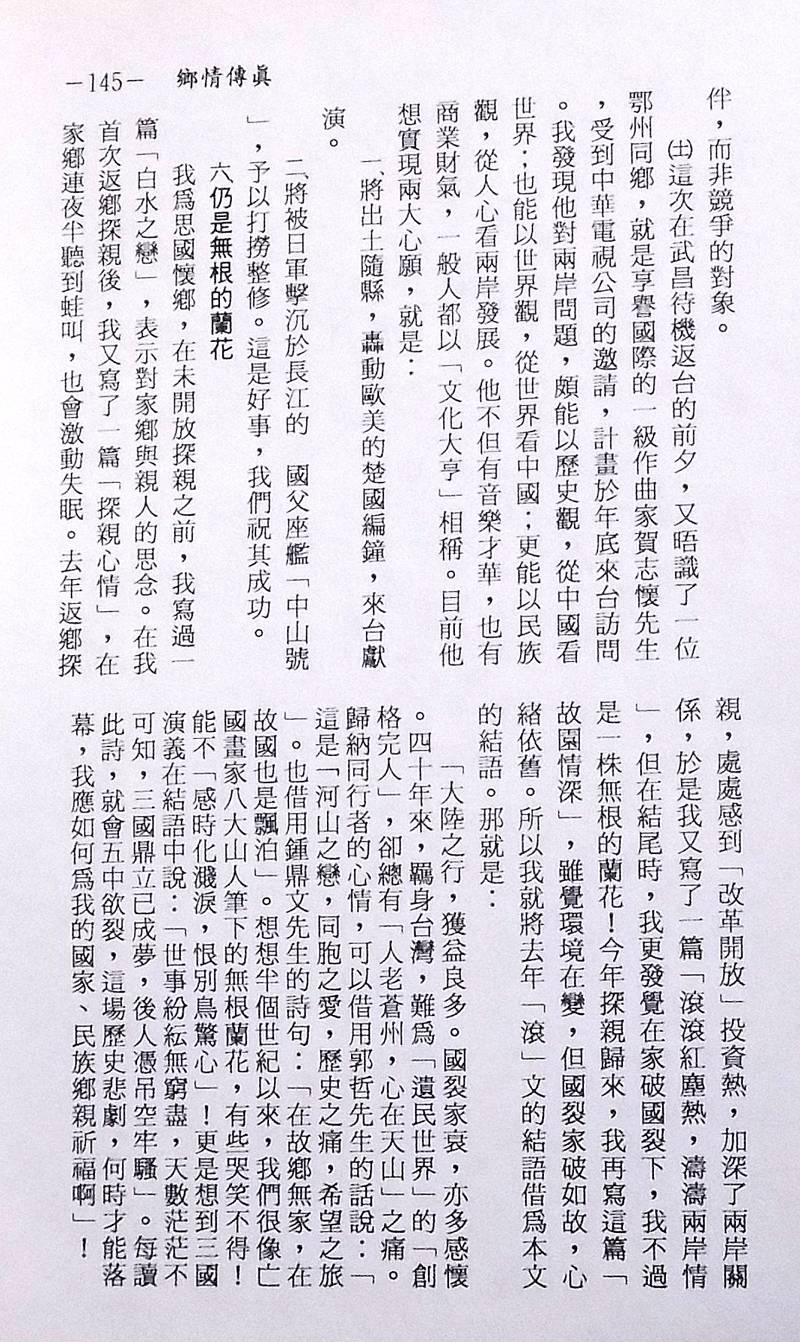 鄉情傳眞
—145—
伴，而非競爭的對象。
㈩這次在武昌待機返台的前夕，又晤識了一位
鄂州同鄉，就是享譽國際的一級作曲家賀志懷先生
，受到中華電視公司的邀請，計畫於年底來台訪問
。我發現他對兩岸問題，頗能以歷史觀，從中國看
世界；也能以世界觀，從世界看中國；更能以民族
觀，從人心看兩岸發展。他不但有音樂才華，也有
商業財氣，一般人都以「文化大亨」相稱。目前他
想實現兩大心願，就是：
一、將出土隨縣，轟動歐美的楚國編鐘，來台獻
演。
二、將被日軍擊沉於長江的　國父座艦「中山號
」，予以打撈整修。這是好事，我們祝其成功。
六仍是無根的蘭花
我爲思國懷鄉，在未開放探親之前，我寫過一
篇「白水之戀」，表示對家鄉與親人的思念。在我
首次返鄉探親後，我又寫了一篇「探親心情」，在
家鄉連夜半聽到蛙叫，也會激動失眠。去年返鄉探
親，處處感到「改革開放」投資熱，加深了兩岸關
係，於是我又寫了一篇「滾滾紅塵熱，濤濤兩岸情
」，但在結尾時，我更發覺在家破國裂下，我不過
是一株無根的蘭花！今年探親歸來，我再寫這篇「
故園情深」，雖覺環境在變，但國裂家破如故，心
緒依舊。所以我就將去年「滾」文的結語借爲本文
的結語。那就是：
「大陸之行，獲益良多。國裂家衰，亦多感懷
。四十年來，羈身台灣，難爲「遺民世界」的「創
格完人」，卻總有「人老蒼州，心在天山」之痛。
歸納同行者的心情，可以借用郭哲先生的話說：「
這是「河山之戀，同胞之愛，歷史之痛，希望之旅
」。也借用鍾鼎文先生的詩句：「在故鄉無家，在
故國也是飄泊」。想想半個世紀以來，我們很像亡
國畫家八大山人筆下的無根蘭花，有些哭笑不得！
能不「感時化濺淚，恨別鳥驚心」！更是想到三國
演義在結語中說：「世事紛紜無窮盡，天數茫茫不
可知，三國鼎立已成夢，後人憑吊空牢騷」。每讀
此詩，就會五中欲裂，這場歷史悲劇，何時才能落
幕，我應如何爲我的國家、民族鄉親祈福啊」！